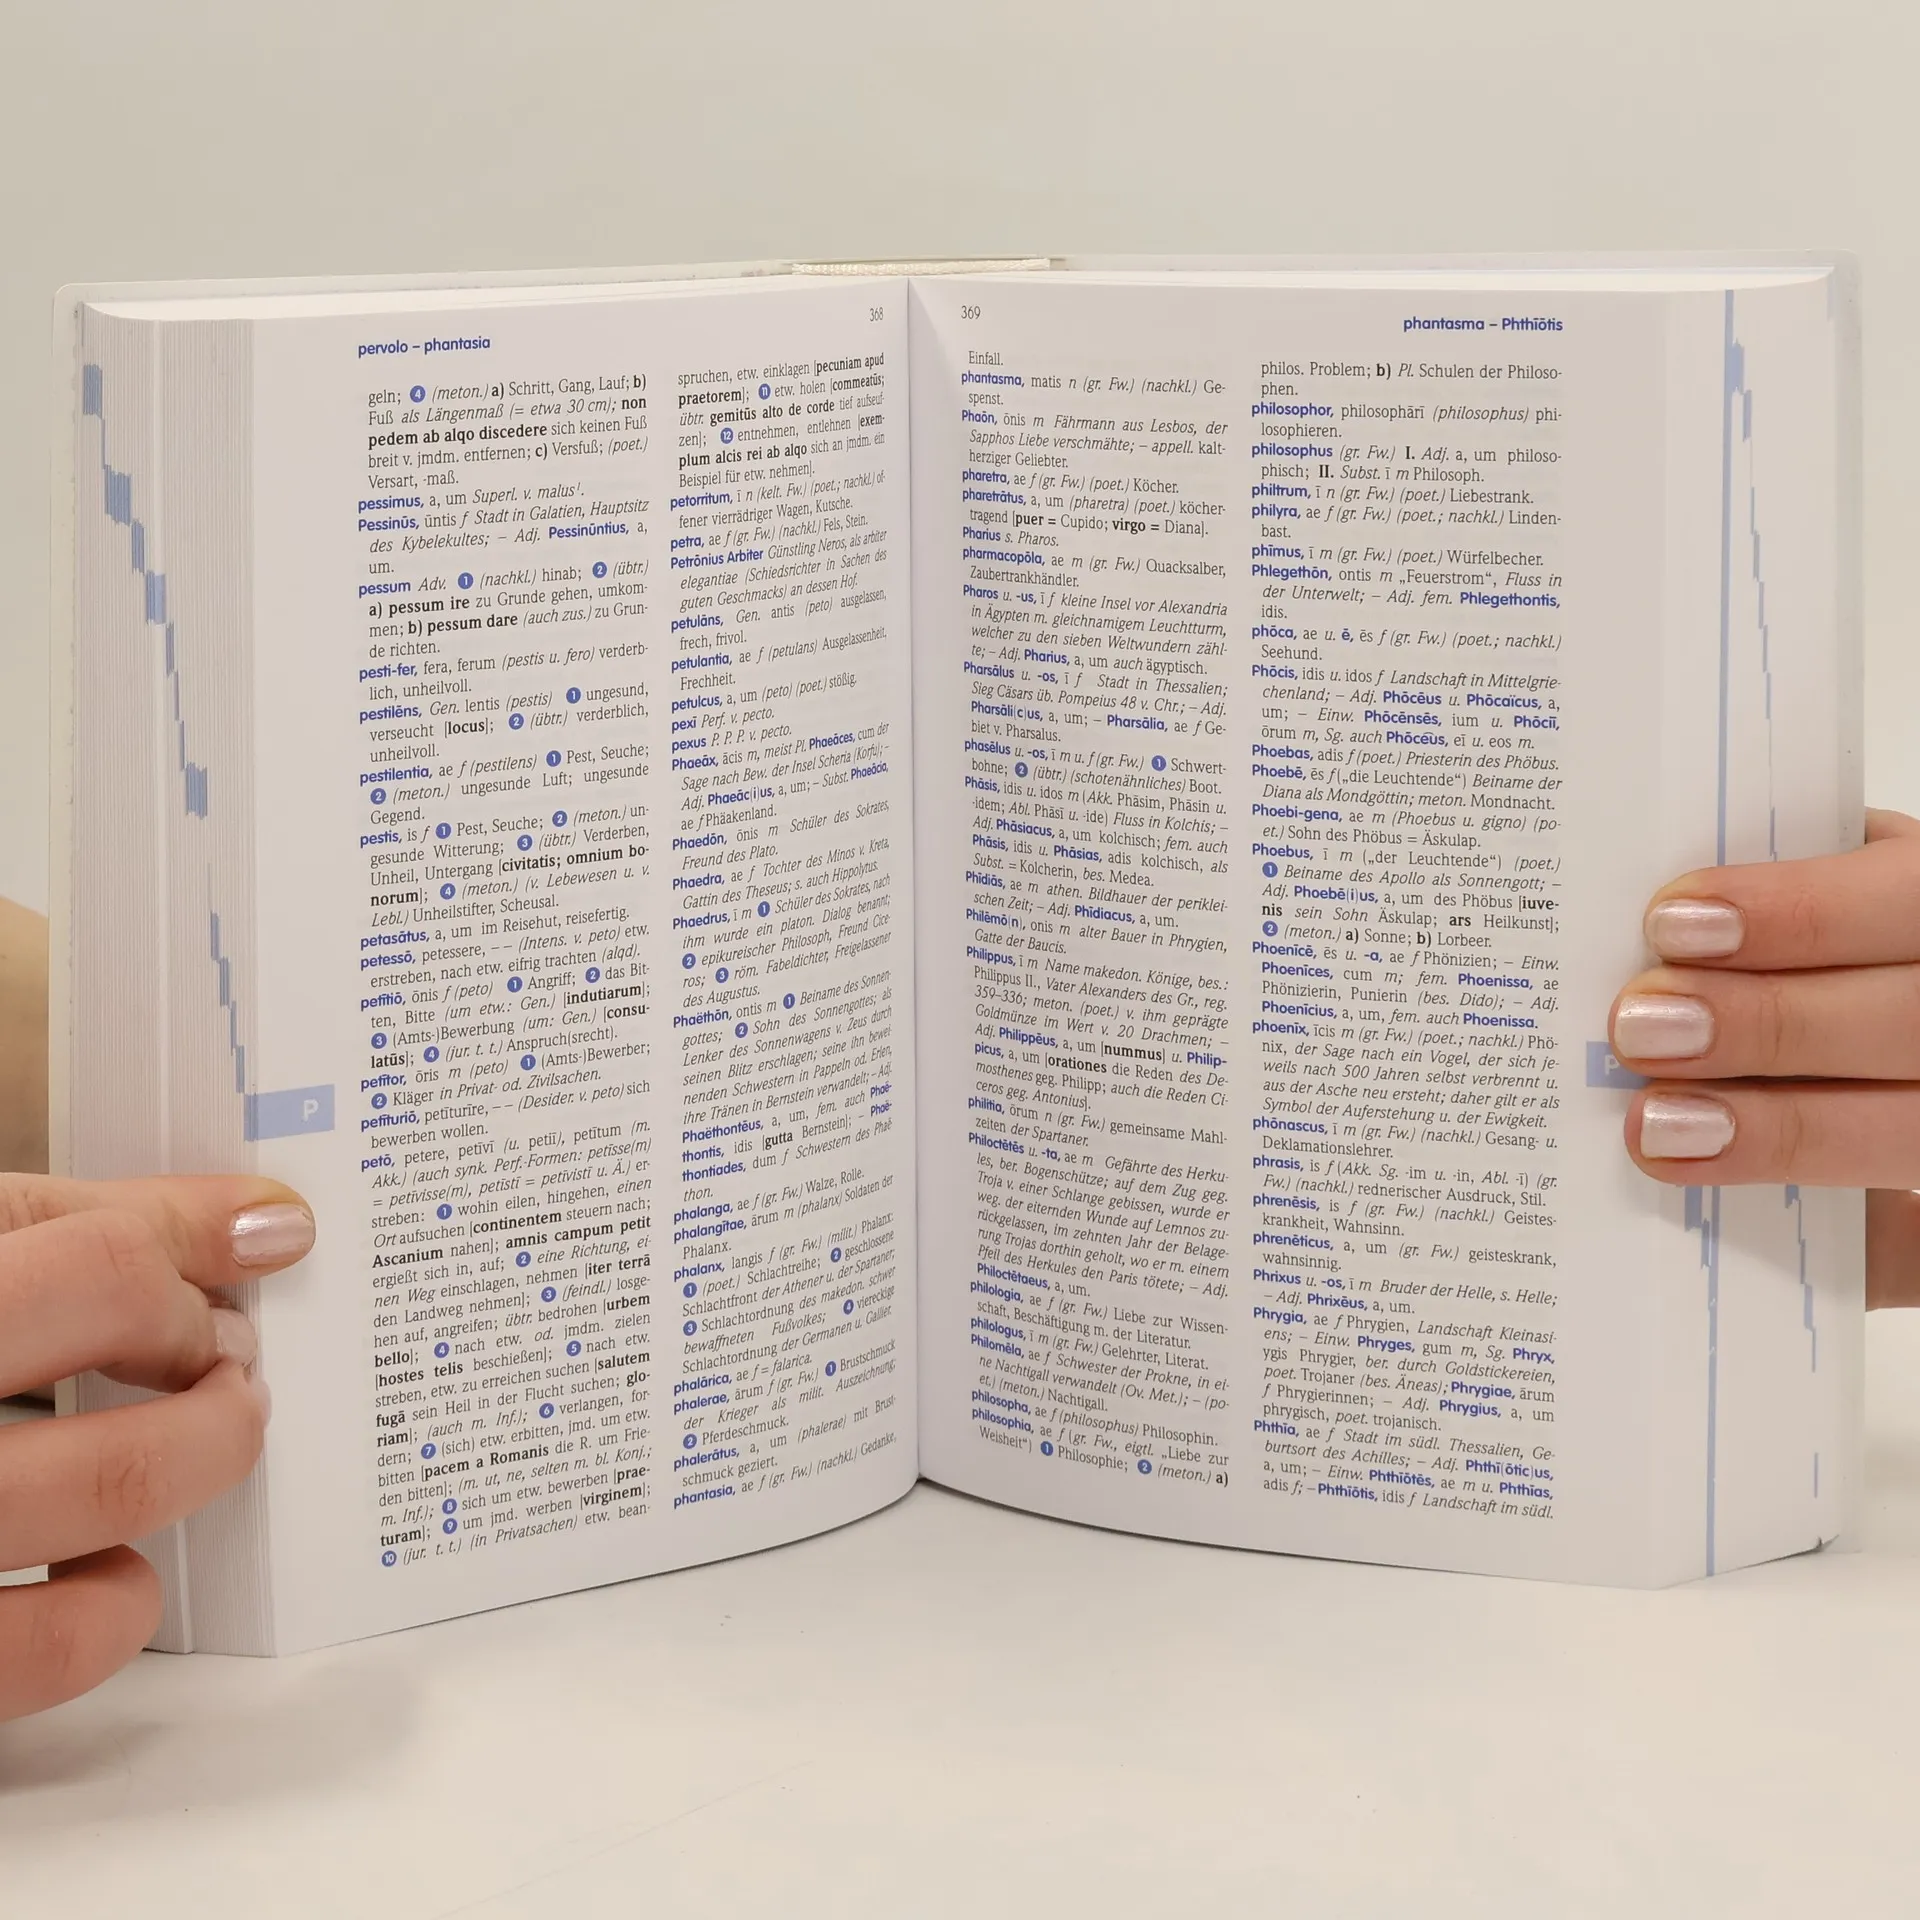 368
pervolo – phantasia
geln; 4 (meton.) a) Schritt, Gang, Lauf; b)
Fuß als Längenmaß (= etwa 30 cm); non
pedem ab alqo discedere sich keinen Fuß
breit v. jmdm. entfernen; c) Versfuß; (poet.)
Versart, -maß.
pessimus, a, um Superl. v. malus¹.
Pessinūs, ūntis f Stadt in Galatien, Hauptsitz
des Kybelekultes; – Adj. Pessinūntius, a,
um.
pessum Adv. 1 (nachkl.) hinab; 2 (übtr.)
a) pessum ire zu Grunde gehen, umkom-
men; b) pessum dare (auch zus.) zu Grun-
de richten.
pesti-fer, fera, ferum (pestis u. fero) verderb-
lich, unheilvoll.
pestilēns, Gen. lentis (pestis) 1 ungesund,
verseucht [locus]; 2 (übtr.) verderblich,
unheilvoll.
pestilentia, ae f (pestilens) 1 Pest, Seuche;
2 (meton.) ungesunde Luft; ungesunde
Gegend.
pestis, is f 1 Pest, Seuche; 2 (meton.) un-
gesunde Witterung; 3 (übtr.) Verderben,
Unheil, Untergang [civitatis; omnium bo-
norum]; 4 (meton.) (v. Lebewesen u. v.
Lebl.) Unheilstifter, Scheusal.
petasātus, a, um im Reisehut, reisefertig.
petessō, petessere, – – (Intens. v. peto) etw.
erstreben, nach etw. eifrig trachten (alqd).
petītiō, ōnis f (peto) 1 Angriff; 2 das Bit-
ten, Bitte (um etw.: Gen.) [indutiarum];
3 (Amts-)Bewerbung (um: Gen.) [consu-
latūs]; 4 (jur. t. t.) Anspruch(srecht).
petītor, ōris m (peto) 1 (Amts-)Bewerber;
2 Kläger in Privat- od. Zivilsachen.
petīturiō, petīturīre, – – (Desider. v. peto) sich
bewerben wollen.
petō, petere, petīvī (u. petiī), petītum (m.
Akk.) (auch synk. Perf.-Formen: petīsse(m)
= petīvisse(m), petīstī = petīvistī u. Ä.) er-
streben: 1 wohin eilen, hingehen, einen
Ort aufsuchen [continentem steuern nach;
Ascanium nahen]; amnis campum petit
ergießt sich in, auf; 2 eine Richtung, ei-
nen Weg einschlagen, nehmen [iter terrā
den Landweg nehmen]; 3 (feindl.) losge-
hen auf, angreifen; übtr. bedrohen [urbem
bello]; 4 nach etw. od. jmdm. zielen
[hostes telis beschießen]; 5 nach etw.
streben, etw. zu erreichen suchen [salutem
fugā sein Heil in der Flucht suchen; glo-
riam]; (auch m. Inf.); 6 verlangen, for-
dern; 7 (sich) etw. erbitten, jmd. um etw.
bitten [pacem a Romanis die R. um Frie-
den bitten]; (m. ut, ne, selten m. bl. Konj.;
m. Inf.); 8 sich um etw. bewerben [prae-
turam]; 9 um jmd. werben [virginem];
10 (jur. t. t.) (in Privatsachen) etw. bean-
spruchen, etw. einklagen [pecuniam apud
praetorem]; 11 etw. holen [commeatūs;
übtr. gemitūs alto de corde tief aufseuf-
zen]; 12 entnehmen, entlehnen [exem-
plum alcis rei ab alqo sich an jmdm. ein
Beispiel für etw. nehmen].
petorritum, ī n (kelt. Fw.) (poet.; nachkl.) of-
fener vierrädriger Wagen, Kutsche.
petra, ae f (gr. Fw.) (nachkl.) Fels, Stein.
Petrōnius Arbiter Günstling Neros, als arbiter
elegantiae (Schiedsrichter in Sachen des
guten Geschmacks) an dessen Hof.
petulāns, Gen. antis (peto) ausgelassen,
frech, frivol.
petulantia, ae f (petulans) Ausgelassenheit,
Frechheit.
petulcus, a, um (peto) (poet.) stößig.
pexī Perf. v. pecto.
pexus P. P. P. v. pecto.
Phaeāx, ācis m, meist Pl. Phaeāces, cum der
Sage nach Bew. der Insel Scheria (Korfu); –
Adj. Phaeāc(i)us, a, um; – Subst. Phaeācia,
ae f Phäakenland.
Phaedōn, ōnis m Schüler des Sokrates,
Freund des Plato.
Phaedra, ae f Tochter des Minos v. Kreta,
Gattin des Theseus; s. auch Hippolytus.
Phaedrus, ī m 1 Schüler des Sokrates, nach
ihm wurde ein platon. Dialog benannt;
2 epikureischer Philosoph, Freund Cice-
ros; 3 röm. Fabeldichter, Freigelassener
des Augustus.
Phaëthōn, ontis m 1 Beiname des Sonnen-
gottes; 2 Sohn des Sonnengottes; als
Lenker des Sonnenwagens v. Zeus durch
seinen Blitz erschlagen; seine ihn bewei-
nenden Schwestern in Pappeln od. Erlen,
ihre Tränen in Bernstein verwandelt; – Adj.
Phaëthontēus, a, um, fem. auch Phaë-
thontis, idis [gutta Bernstein]; – Phaë-
thontiades, dum f Schwestern des Phaë-
thon.
phalanga, ae f (gr. Fw.) Walze, Rolle.
phalangītae, ārum m (phalanx) Soldaten der
Phalanx.
phalanx, langis f (gr. Fw.) (milit.) Phalanx:
1 (poet.) Schlachtreihe; 2 geschlossene
Schlachtfront der Athener u. der Spartaner;
3 Schlachtordnung des makedon. schwer
bewaffneten Fußvolkes; 4 viereckige
Schlachtordnung der Germanen u. Gallier.
phalārica, ae f = falarica.
phalerae, ārum f (gr. Fw.) 1 Brustschmuck
der Krieger als milit. Auszeichnung;
2 Pferdeschmuck.
phalerātus, a, um (phalerae) mit Brust-
schmuck geziert.
phantasia, ae f (gr. Fw.) (nachkl.) Gedanke,
P
369
phantasma – Phthīōtis
Einfall.
phantasma, matis n (gr. Fw.) (nachkl.) Ge-
spenst.
Phaōn, ōnis m Fährmann aus Lesbos, der
Sapphos Liebe verschmähte; – appell. kalt-
herziger Geliebter.
pharetra, ae f (gr. Fw.) (poet.) Köcher.
pharetrātus, a, um (pharetra) (poet.) köcher-
tragend [puer = Cupido; virgo = Diana].
Pharius s. Pharos.
pharmacopōla, ae m (gr. Fw.) Quacksalber,
Zaubertrankhändler.
Pharos u. -us, ī f kleine Insel vor Alexandria
in Ägypten m. gleichnamigem Leuchtturm,
welcher zu den sieben Weltwundern zähl-
te; – Adj. Pharius, a, um auch ägyptisch.
Pharsālus u. -os, ī f Stadt in Thessalien;
Sieg Cäsars üb. Pompeius 48 v. Chr.; – Adj.
Pharsāli(c)us, a, um; – Pharsālia, ae f Ge-
biet v. Pharsalus.
phasēlus u. -os, ī m u. f (gr. Fw.) 1 Schwert-
bohne; 2 (übtr.) (schotenähnliches) Boot.
Phāsis, idis u. idos m (Akk. Phāsim, Phāsin u.
-idem; Abl. Phāsī u. -ide) Fluss in Kolchis; –
Adj. Phāsiacus, a, um kolchisch; fem. auch
Phāsis, idis u. Phāsias, adis kolchisch, als
Subst. = Kolcherin, bes. Medea.
Phīdiās, ae m athen. Bildhauer der periklei-
schen Zeit; – Adj. Phīdiacus, a, um.
Philēmō(n), onis m alter Bauer in Phrygien,
Gatte der Baucis.
Philippus, ī m Name makedon. Könige, bes.:
Philippus II., Vater Alexanders des Gr., reg.
359–336; meton. (poet.) v. ihm geprägte
Goldmünze im Wert v. 20 Drachmen; –
Adj. Philippēus, a, um [nummus] u. Philip-
picus, a, um [orationes die Reden des De-
mosthenes geg. Philipp; auch die Reden Ci-
ceros geg. Antonius].
philitia, ōrum n (gr. Fw.) gemeinsame Mahl-
zeiten der Spartaner.
Philoctētēs u. -ta, ae m Gefährte des Herku-
les, ber. Bogenschütze; auf dem Zug geg.
Troja v. einer Schlange gebissen, wurde er
weg. der eiternden Wunde auf Lemnos zu-
rückgelassen, im zehnten Jahr der Belage-
rung Trojas dorthin geholt, wo er m. einem
Pfeil des Herkules den Paris tötete; – Adj.
Philoctētaeus, a, um.
philologia, ae f (gr. Fw.) Liebe zur Wissen-
schaft, Beschäftigung m. der Literatur.
philologus, ī m (gr. Fw.) Gelehrter, Literat.
Philomēla, ae f Schwester der Prokne, in ei-
ne Nachtigall verwandelt (Ov. Met.); – (po-
et.) (meton.) Nachtigall.
philosopha, ae f (philosophus) Philosophin.
philosophia, ae f (gr. Fw., eigtl. „Liebe zur
Weisheit“) 1 Philosophie; 2 (meton.) a)
philos. Problem; b) Pl. Schulen der Philoso-
phen.
philosophor, philosophārī (philosophus) phi-
losophieren.
philosophus (gr. Fw.) I. Adj. a, um philoso-
phisch; II. Subst. ī m Philosoph.
philtrum, ī n (gr. Fw.) (poet.) Liebestrank.
philyra, ae f (gr. Fw.) (poet.; nachkl.) Linden-
bast.
phīmus, ī m (gr. Fw.) (poet.) Würfelbecher.
Phlegethōn, ontis m „Feuerstrom“, Fluss in
der Unterwelt; – Adj. fem. Phlegethontis,
idis.
phōca, ae u. ē, ēs f (gr. Fw.) (poet.; nachkl.)
Seehund.
Phōcis, idis u. idos f Landschaft in Mittelgrie-
chenland; – Adj. Phōcēus u. Phōcaïcus, a,
um; – Einw. Phōcēnsēs, ium u. Phōciī,
ōrum m, Sg. auch Phōceūs, eī u. eos m.
Phoebas, adis f (poet.) Priesterin des Phöbus.
Phoebē, ēs f („die Leuchtende“) Beiname der
Diana als Mondgöttin; meton. Mondnacht.
Phoebi-gena, ae m (Phoebus u. gigno) (po-
et.) Sohn des Phöbus = Äskulap.
Phoebus, ī m („der Leuchtende“) (poet.)
1 Beiname des Apollo als Sonnengott; –
Adj. Phoebē(i)us, a, um des Phöbus [iuve-
nis sein Sohn Äskulap; ars Heilkunst];
2 (meton.) a) Sonne; b) Lorbeer.
Phoenīcē, ēs u. -a, ae f Phönizien; – Einw.
Phoenīces, cum m; fem. Phoenissa, ae
Phönizierin, Punierin (bes. Dido); – Adj.
Phoenīcius, a, um, fem. auch Phoenissa.
phoenīx, īcis m (gr. Fw.) (poet.; nachkl.) Phö-
nix, der Sage nach ein Vogel, der sich je-
weils nach 500 Jahren selbst verbrennt u.
aus der Asche neu ersteht; daher gilt er als
Symbol der Auferstehung u. der Ewigkeit.
phōnascus, ī m (gr. Fw.) (nachkl.) Gesang- u.
Deklamationslehrer.
phrasis, is f (Akk. Sg. -im u. -in, Abl. -ī) (gr.
Fw.) (nachkl.) rednerischer Ausdruck, Stil.
phrenēsis, is f (gr. Fw.) (nachkl.) Geistes-
krankheit, Wahnsinn.
phrenēticus, a, um (gr. Fw.) geisteskrank,
wahnsinnig.
Phrixus u. -os, ī m Bruder der Helle, s. Helle;
– Adj. Phrixēus, a, um.
Phrygia, ae f Phrygien, Landschaft Kleinasi-
ens; – Einw. Phryges, gum m, Sg. Phryx,
ygis Phrygier, ber. durch Goldstickereien,
poet. Trojaner (bes. Äneas); Phrygiae, ārum
f Phrygierinnen; – Adj. Phrygius, a, um
phrygisch, poet. trojanisch.
Phthīa, ae f Stadt im südl. Thessalien, Ge-
burtsort des Achilles; – Adj. Phthī(ōtic)us,
a, um; – Einw. Phthīōtēs, ae m u. Phthīas,
adis f; – Phthīōtis, idis f Landschaft im südl.
P